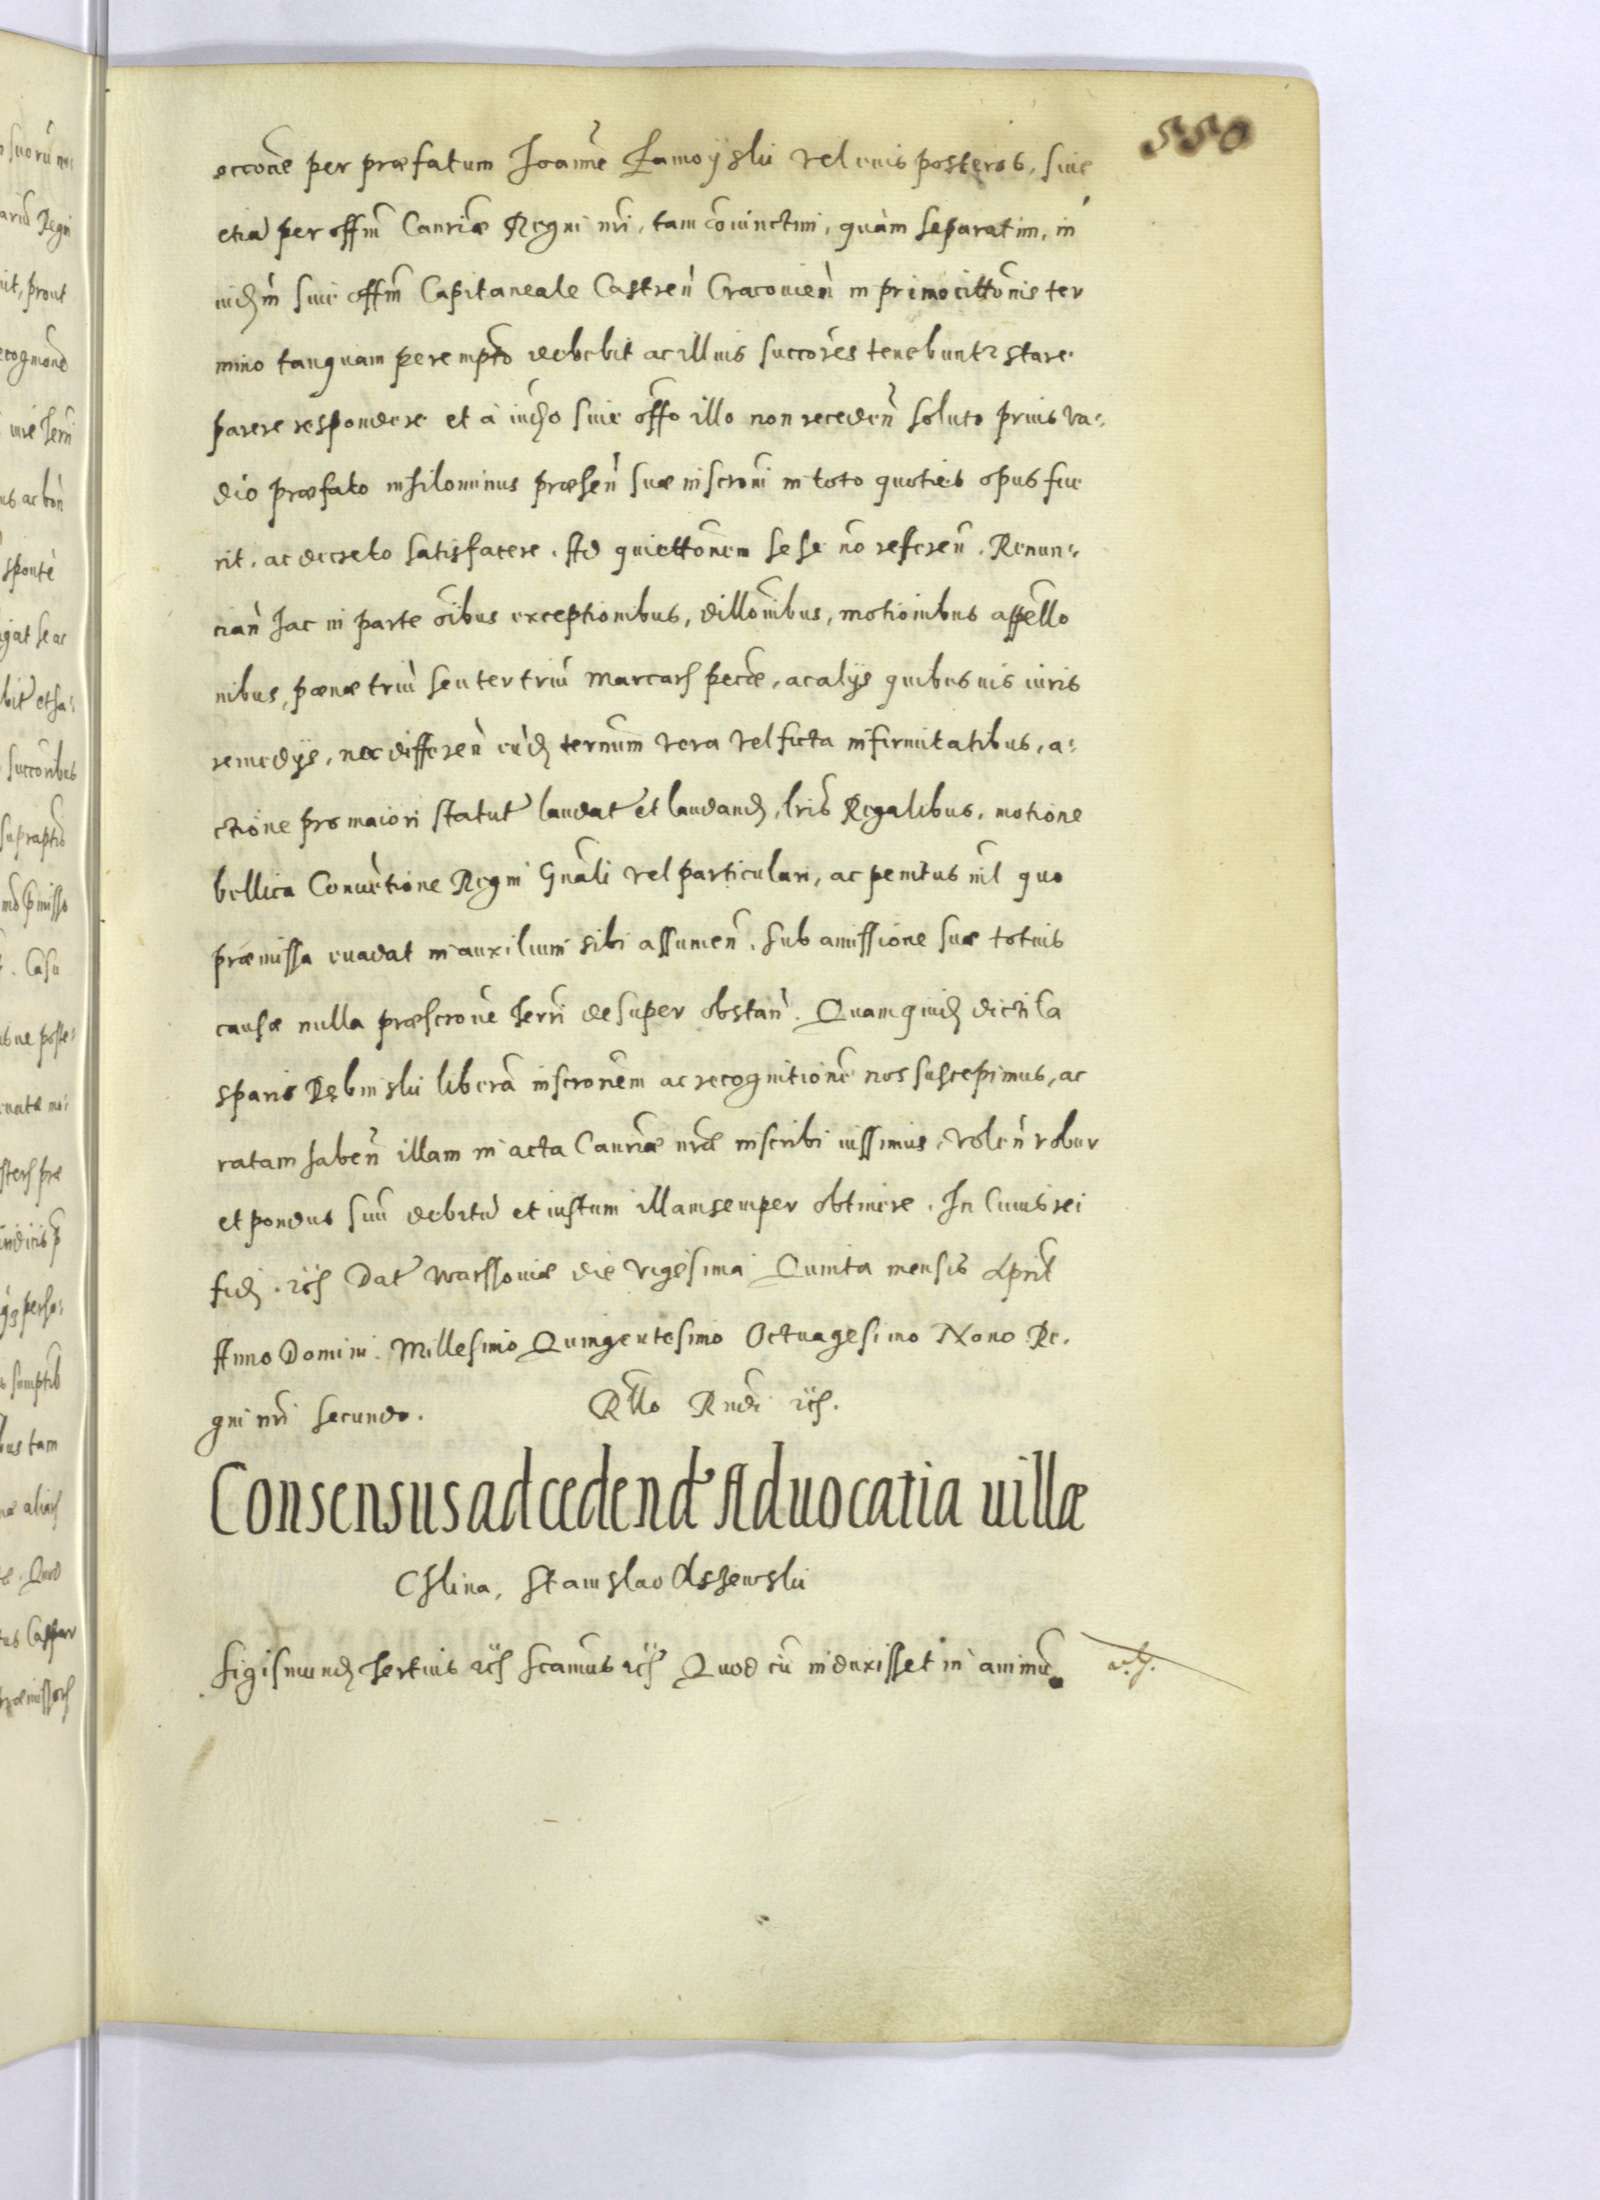 550
occone per præfatum Joannē Zamoyski vel eius posteros, siue
etiā per offm̄ Canriæ Regni nr̄i, tam cōiunctim, quàm separatim, in
iudm̄ siue offm̄ Capitaneale Castren̄ Cracouien̄ in primo citton̄is ter
mino tanquam perempt̄o debebit ac illius succōres tenebuntr stare
parere respondere et à iudo siue offo illo non receden̄ soluto prius va-
dio præfato nihilominus præsen̄ suæ inscroni in toto quoties opus fue
rit, ac decreto satisfacere. Ad quiettonem sese nō referen̄. Renun-
cian̄ hac in parte oībus exceptionibus, dillonibus, motionibus appello
nibus, pœnæ triū seu ter triū marcarū pecc̄e, ac alijs quibusuis iuris
remedijs, nec differen̄ eūd terminum vera vel ficta infirmitatibus, a-
ctione pro maiori statut laudat et laudand, lris Regalibus, motione
bellica Conuētione Regni Gnāli vel particulari, ac penitus nīl quo
præmissa euadat in auxilium sibi assumen̄. Sub amissione suæ totius
causæ nulla præscrone terri desuper obstan̄. Quamquid dicti Ca
sparis Dębinski liberā inscronem ac recognitionē nos suscepimus, ac
ratam haben̄ illam in acta Canriæ nræ inscribi iussimus, volen̄ robur
et pondus suū debitū et iustum illam semper obtinere. In Cuius rei
fid. etc Dat Warssouiæ die vigesima Quinta mensis Aprīl
Anno Domini. Millesimo Quingentesimo Octuagesimo Nono Re.
gni nr̄i secundo. Rllo Rndi etc.
Consensus ad cedend Aduocatia uillæ
Chlina, Stanislao Olssewski
Sigismund tertius etc Scamus etc Quod cū induxisset in animū